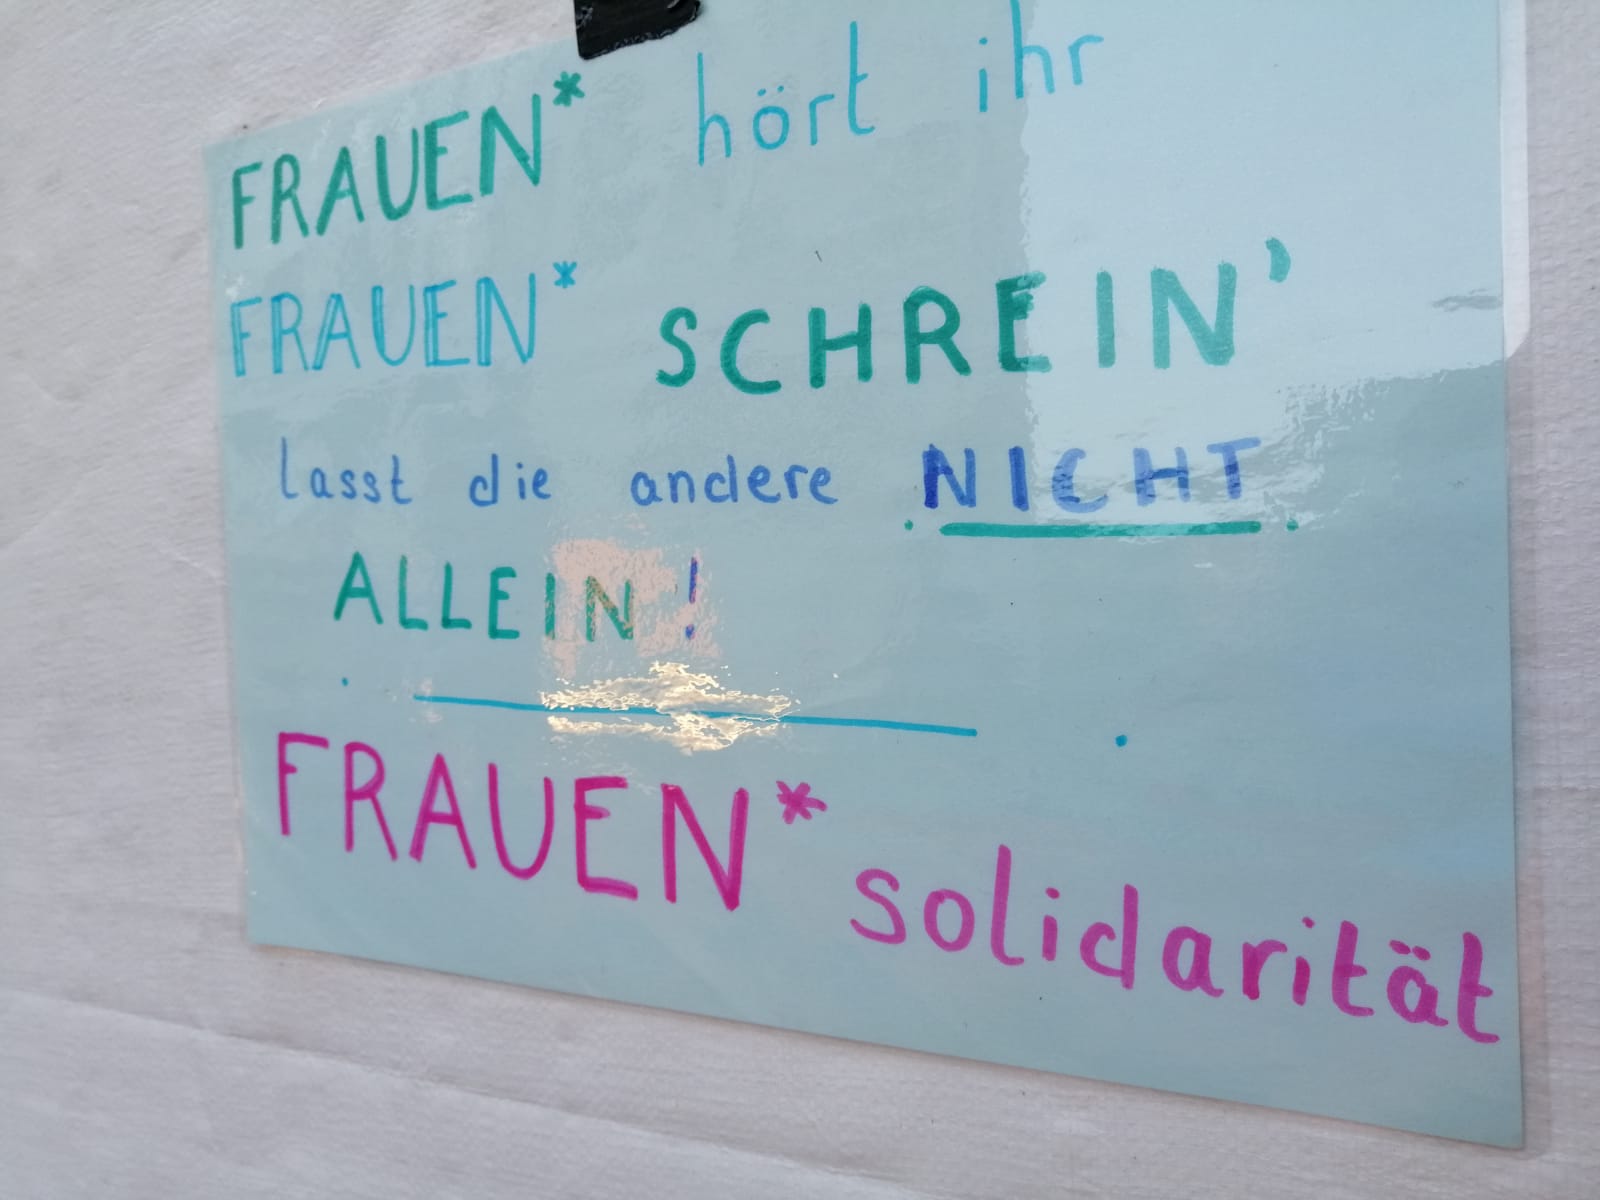 FRAUEN* hört ihr
FRAUEN* SCHREIN'
lasst die andere NICHT
ALLEIN!
FRAUEN* solidarität